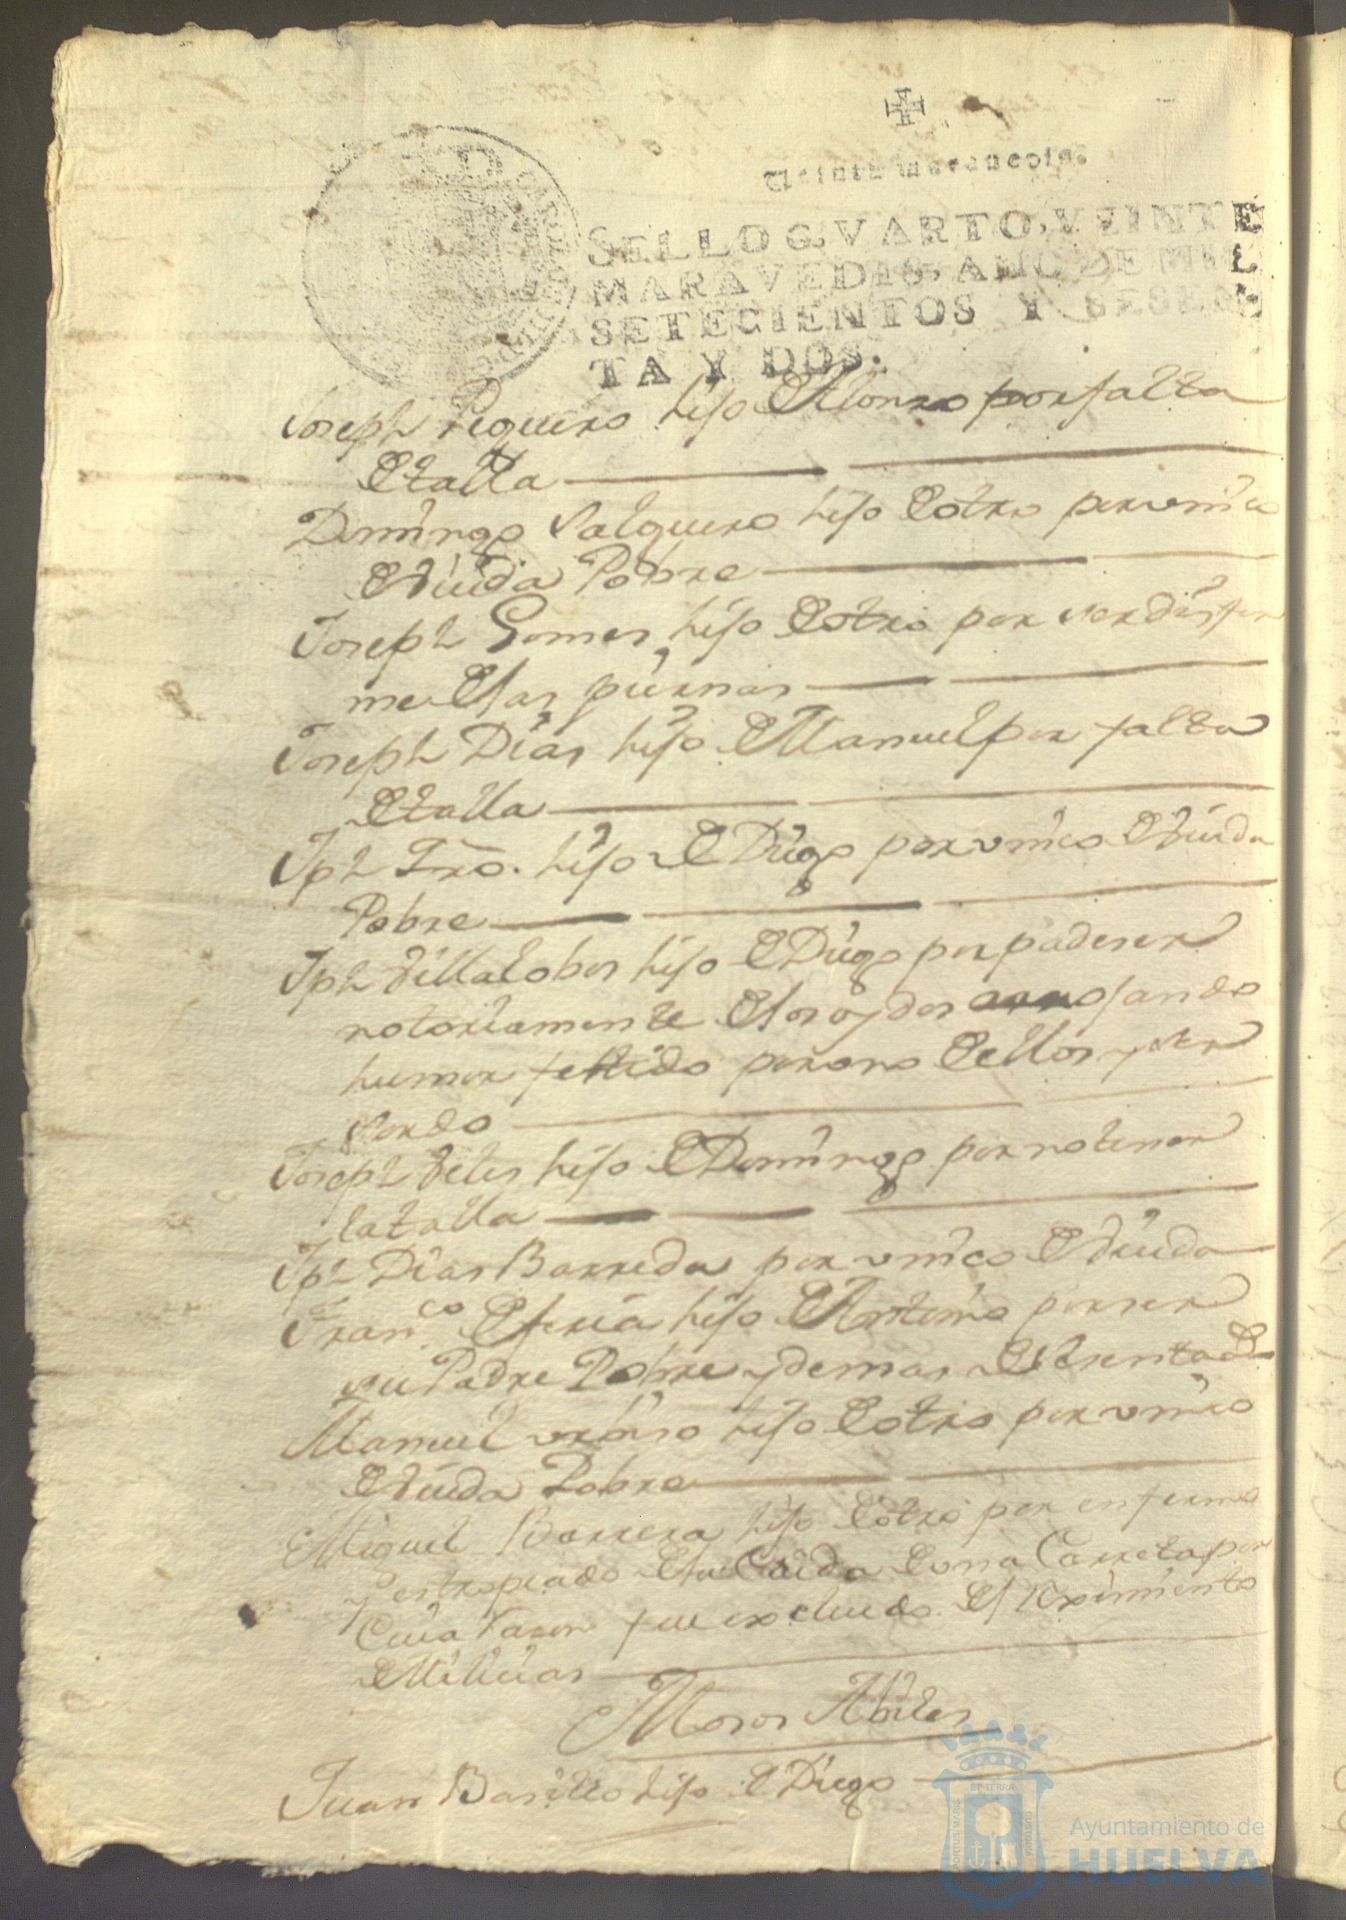 Veinte maravedis.
SELLO QVARTO, VEINTE
MARAVEDIS, AÑO DE MIL
SETECIENTOS Y SESEN
TA Y DOS.
Joseph Peguero hijo de Alonso por falta
de talla
Domingo Salguero hijo de otro por unico
de viuda Pobre
Joseph Gomes hijo de otro por ser disfor
me de las piernas
Joseph Dias hijo de Manuel por falta
de talla
Jph hijo de Diego por unico de viuda
Pobre
Jph Villalobos hijo de Diego por padeser
notoriamente de los oydos
humor fetido por uno de ellos y ser
sordo
Joseph Veles hijo de Domingo por no tener
la talla
Jph Dias Barreda por unico de viuda
Franco de feria hijo de Antonio por ser
su Padre Pobre y demas de sesenta as
Manuel hijo de otro por unico
de viuda Pobre
Miguel Barrera hijo de otro por enfermo
y estropeado de la Caida de una Carreta por
Cuia rason fue excluido del
de Milicias
Mosos Abiles
Juan hijo de Diego
Ayuntamiento de
HUELVA